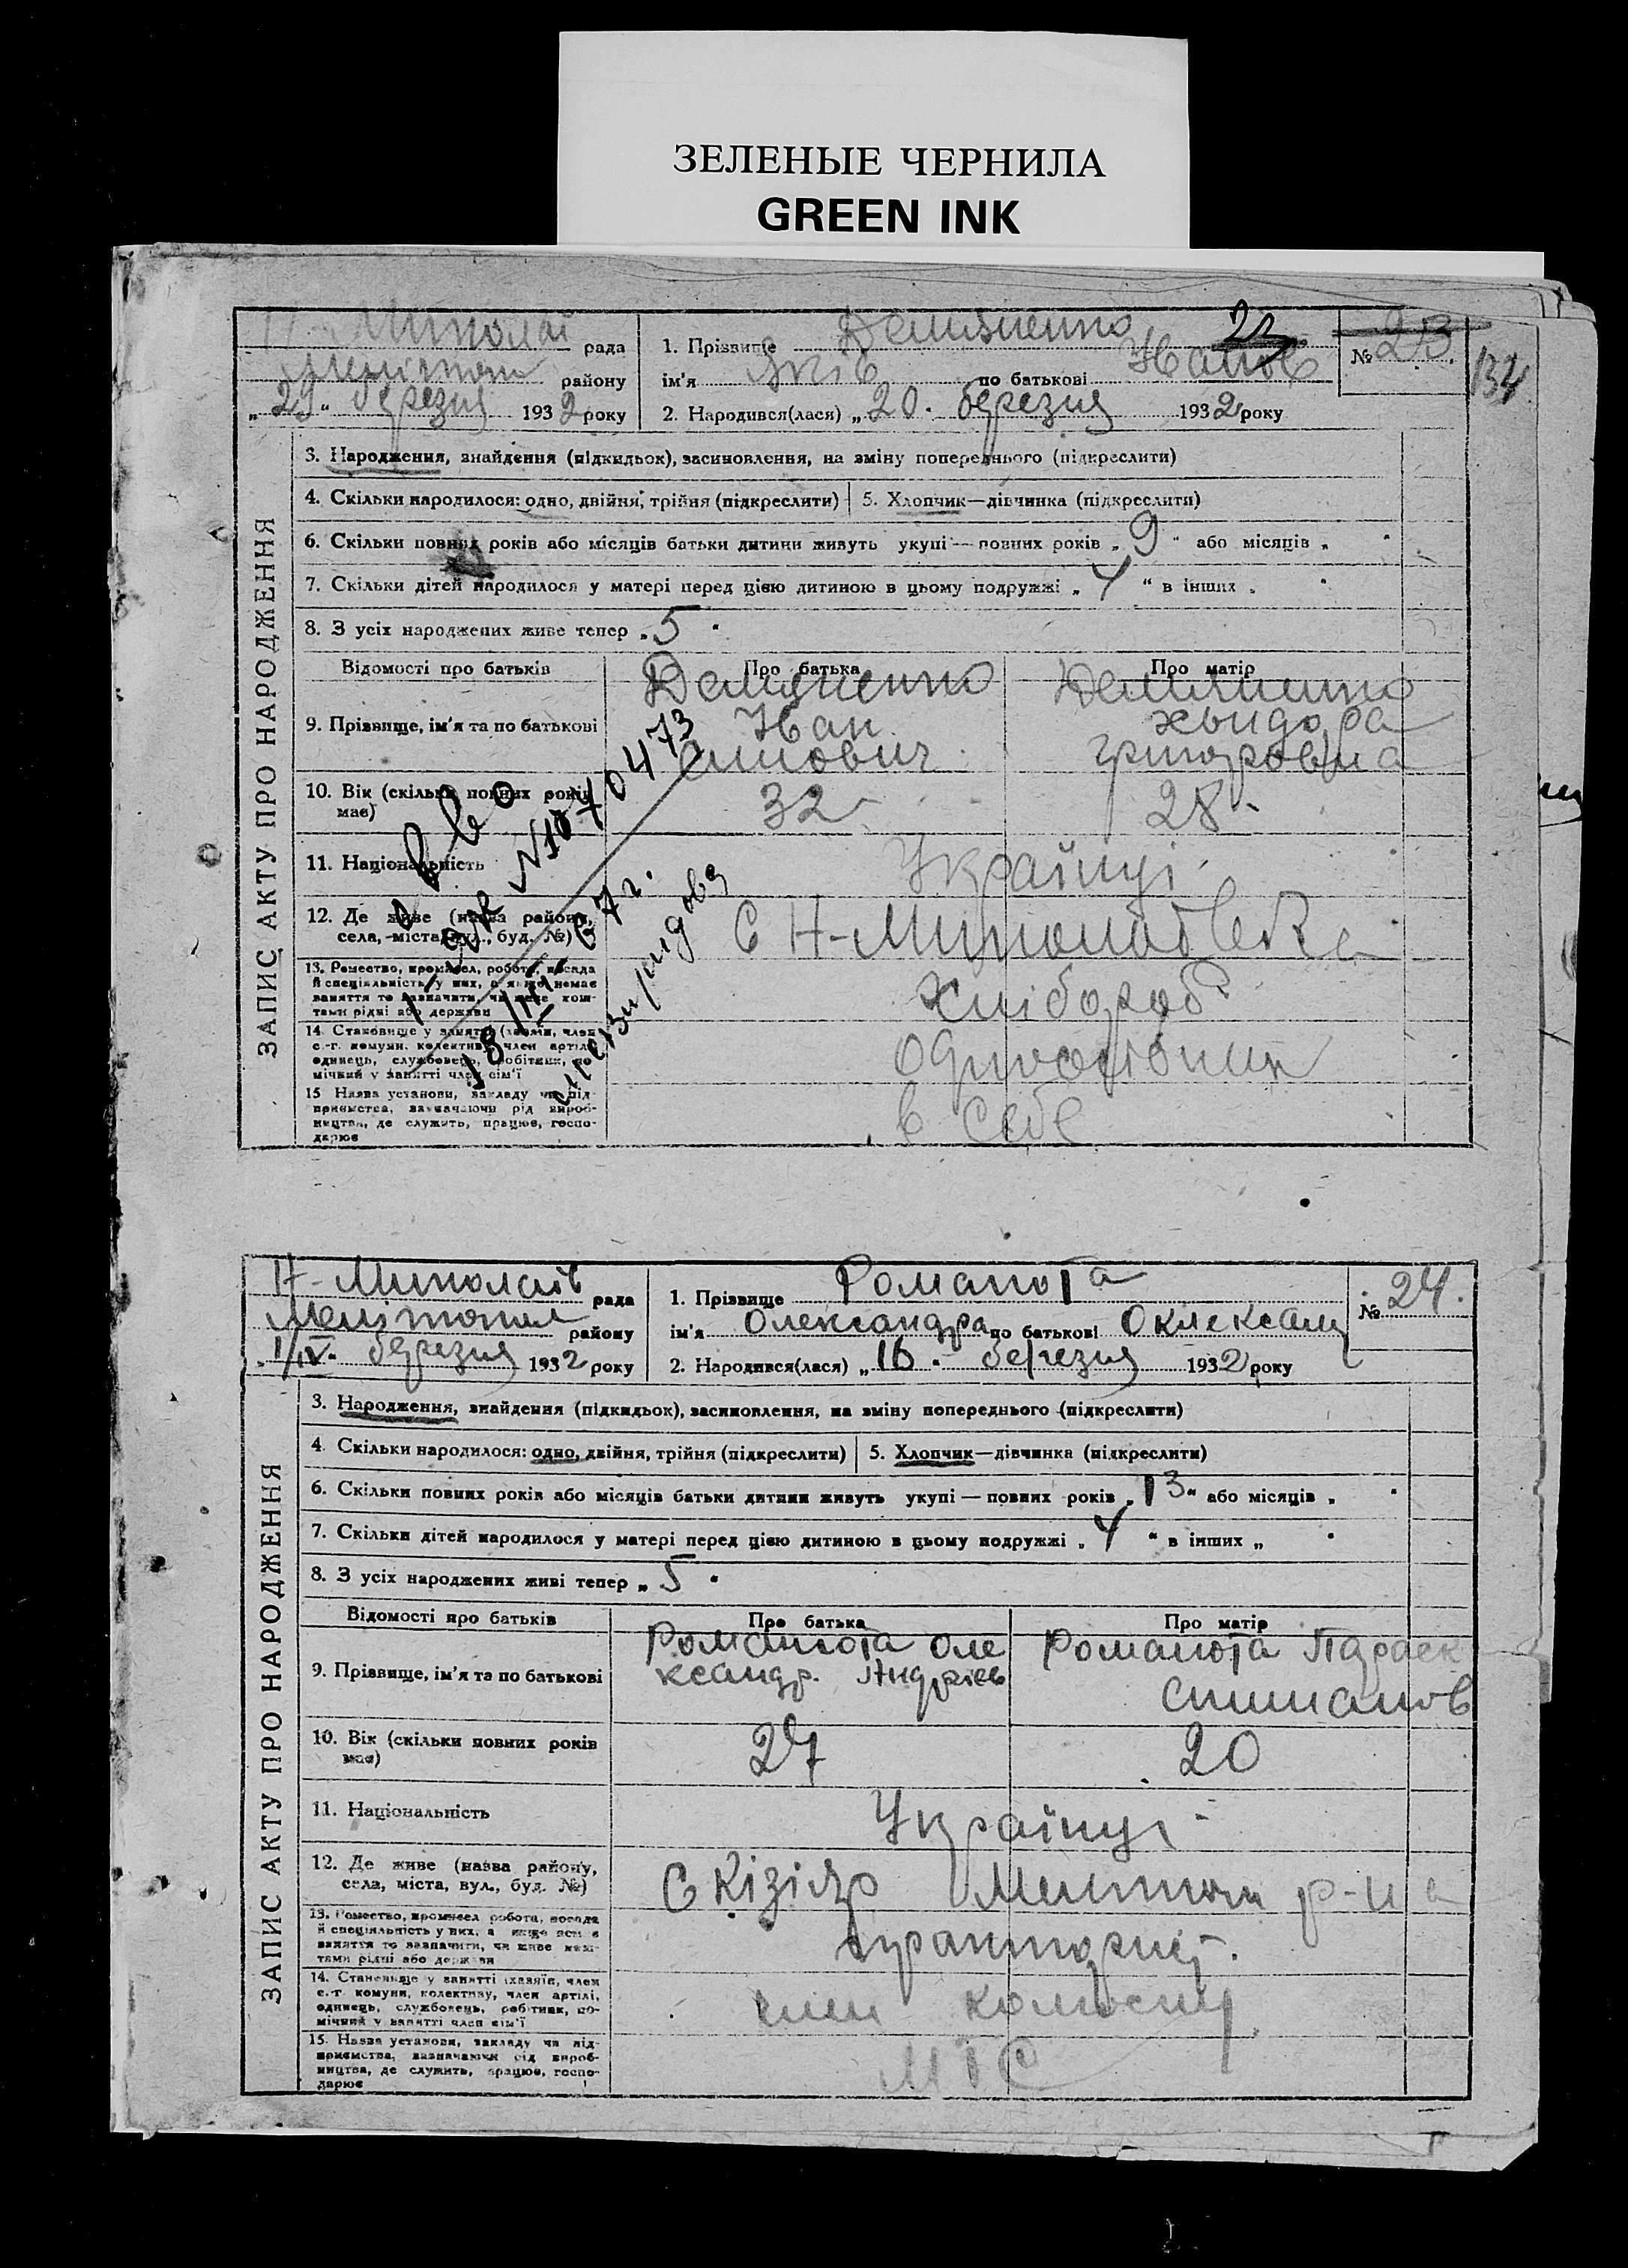 ЗЕЛЕНЫЕ ЧЕРНИЛА
GREEN INK
134
рада
района
району
29 березня 1932 року
1. Прізвище Демяненко
ім'я Яків по батькові Іванов
2. Народився(лася) „20. березня 1932 року
№ 23
ЗАПИС АКТУ ПРО НАРОДЖЕННЯ
3. Народження, знайдення (підкидьок), засиновлення, на зміну попереднього (підкреслити)
4. Скільки народилося: одно, двійня, трійня (підкреслити) 5. Хлопчик—дівчинка (підкреслити)
6. Скільки повних років або місяців батьки дитини живуть укупі — повних років „9“ або місяців „
7. Скільки дітей народилося у матері перед цією дитиною в цьому подружжі „4“ в інших „
8. З усіх народжених живе тепер „5“
Відомості про батьків Про батька Про матір
9. Прізвище, ім'я та по батькові
Демяненко
Іван
Демяненко
10. Вік (скільки повних років має) 32 28
11. Національність Українці
12. Де живе (назва району, села, міста, вул., буд. №)
13. Ремество, промисел, робота, посада
й спеціяльність у них, а якщо немає
заняття то зазначити, чи живе кош-
тами рідні або держави
Хлібороб
14. Становище у занятті (хазяїн, член
с.-г. комуни, колективу, член артілі,
одинець, службовець, робітник, по-
мічний у занятті член сім'ї
15. Назва установи, закладу чи під-
приємства, зазначаючи рід вироб-
ництва, де служить, працює, госпо-
дарює
в себе
№ 1070473
Н-Миколаїв рада
Мелітопол району
1/IV березня 1932 року
1. Прізвище Романюта
ім'я Олександра по батькові
2. Народився(лася) „16. березня 1932 року
№ 24.
ЗАПИС АКТУ ПРО НАРОДЖЕННЯ
3. Народження, знайдення (підкидьок), засиновлення, на зміну попереднього (підкреслити)
4. Скільки народилося: одно, двійня, трійня (підкреслити) 5. Хлопчик—дівчинка (підкреслити)
6. Скільки повних років або місяців батьки дитини живуть укупі — повних років „13“ або місяців „
7. Скільки дітей народилося у матері перед цією дитиною в цьому подружжі „4“ в інших „
8. З усіх народжених живі тепер „5“
Відомості про батьків Про батька Про матір
9. Прізвище, ім'я та по батькові
Романюта Оле
ксандр. Андріев
Романюта Параск
10. Вік (скільки повних років має) 27 20
11. Національність Українці
12. Де живе (назва району, села, міста, вул., буд. №)
с Кізіяр Мелитопол р-на
13. Ремество, промисел, робота, посада
й спеціяльність у них, а якщо немає
заняття то зазначити, чи живе кош-
тами рідні або держави
тракторист.
14. Становище у занятті (хазяїн, член
с.-г. комуни, колективу, член артілі,
одинець, службовець, робітник, по-
мічний у занятті член сім'ї
член
15. Назва установи, закладу чи під-
приємства, зазначаючи рід вироб-
ництва, де служить, працює, госпо-
дарює
МТС